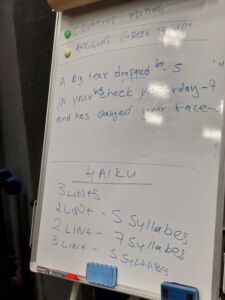 CREATIVE WRITING
ANTIGONE GREEK TRAGEDY
A big tear dropped by - 5
IN your cheek yesterday - 7
and has changed your face -
HAIKU
3 LINES
1 LINE - 5 Syllabes
2 LINE - 7 Syllabes
3 LINE - 5 SYLLABES